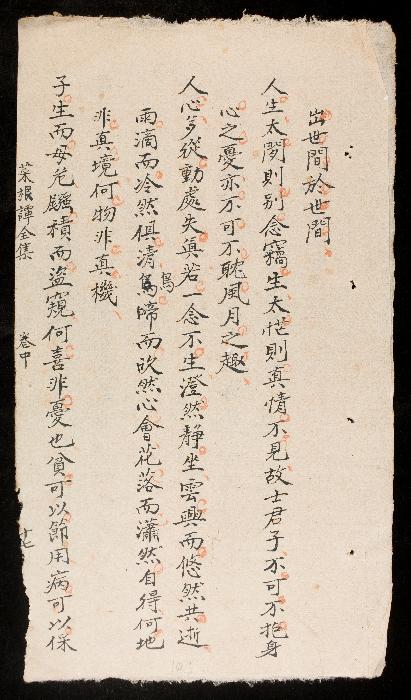 出世間於世間
人生太閒則別念竊生太忙則真情不見故士君子不可不抱身
心之憂亦不可不耽風月之趣
人心多從動處失真若一念不生澄然靜坐雲興而悠然共逝
雨滴而冷然俱清鳥啼而欣然心會花落而瀟然自得何地
鳥
非真境何物非真機
子生而母危鏹積而盜窺何喜非憂也貧可以節用病可以保
菜根譚全集 卷中 十七